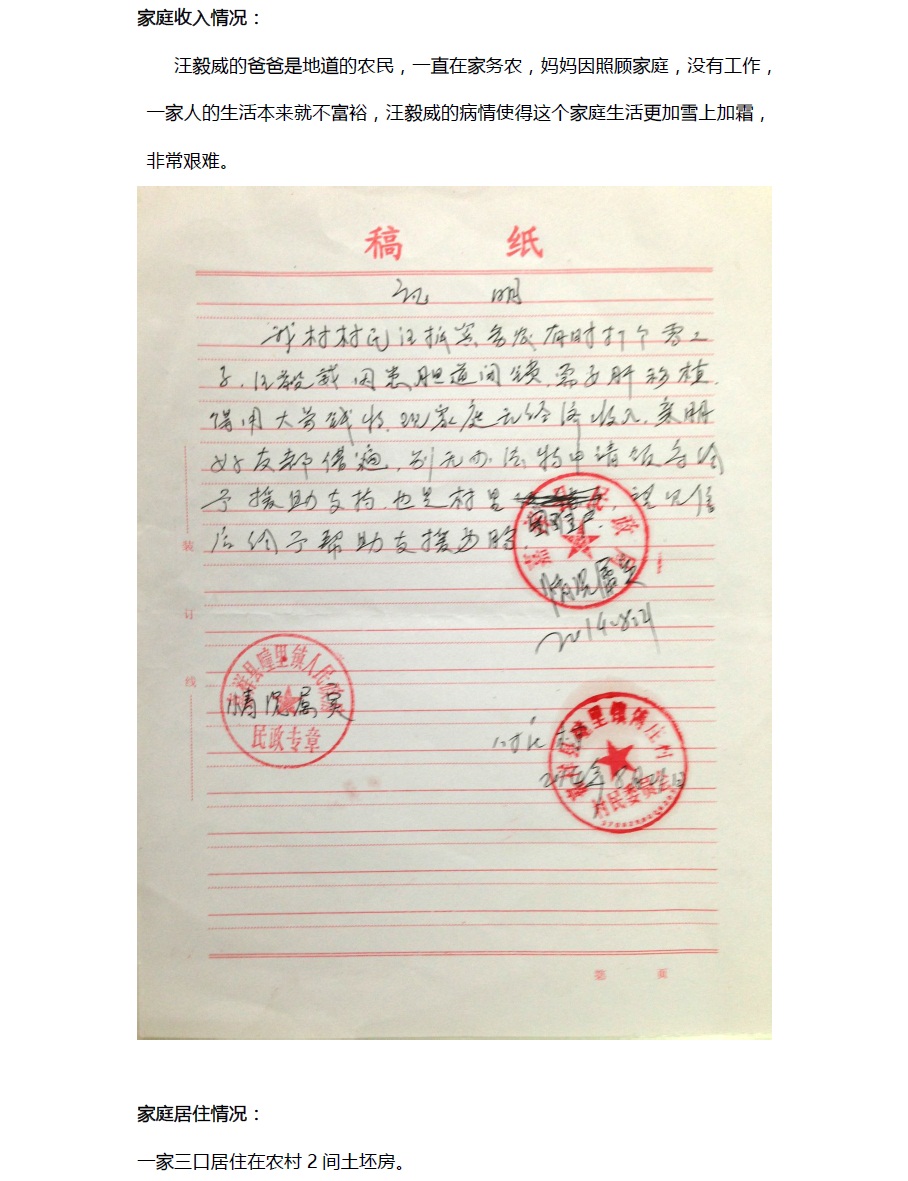 家庭收入情况：
汪毅威的爸爸是地道的农民，一直在家务农，妈妈因照顾家庭，没有工作，
一家人的生活本来就不富裕，汪毅威的病情使得这个家庭生活更加雪上加霜，
非常艰难。
稿 纸
证 明
我村村民汪 务农 有时打个零工
子，汪毅威因患胆道闭锁，需要肝移植，
得用大 钱 ，现家庭无经济收入，亲朋
好友都借遍，别无办法特申请 给
予援助支持，也是村里 困难户，望见信
后给予帮助支援为盼。
装
订
线
情况属实
2014.8.21
嘉祥县疃里镇人民政府
情况属实
民政专章
村民委员会
第 页
家庭居住情况：
一家三口居住在农村 2 间土坯房。